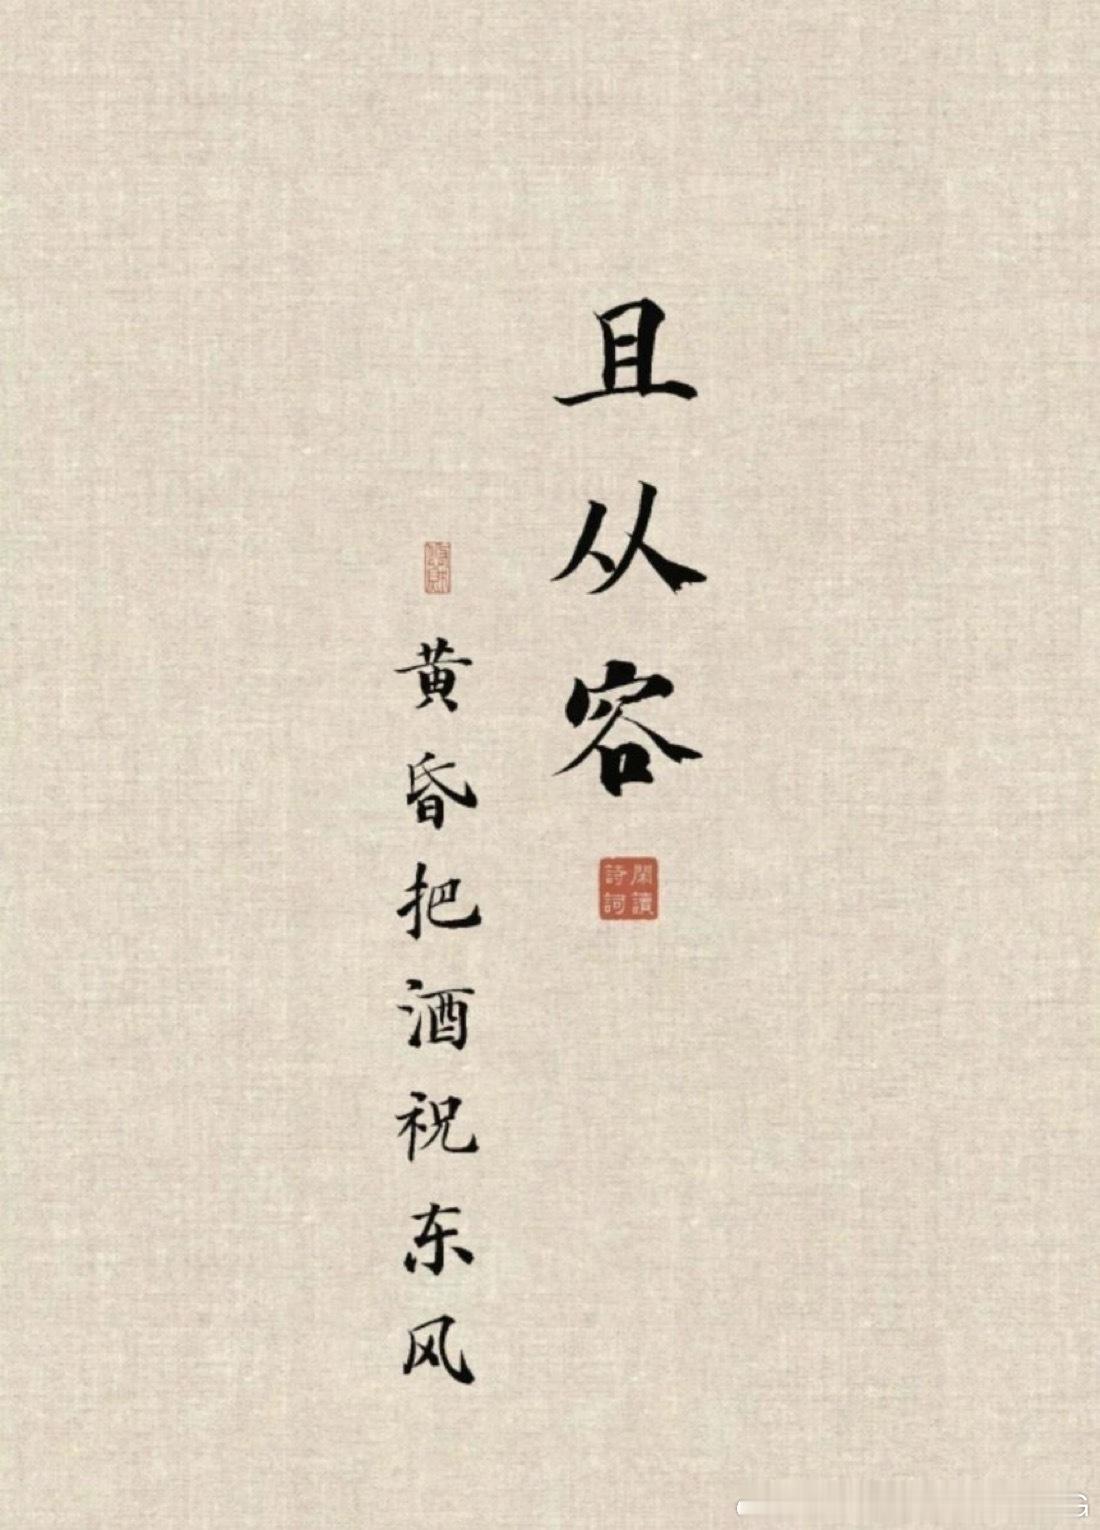 且从容
閑讀詩詞
黄昏把酒祝东风